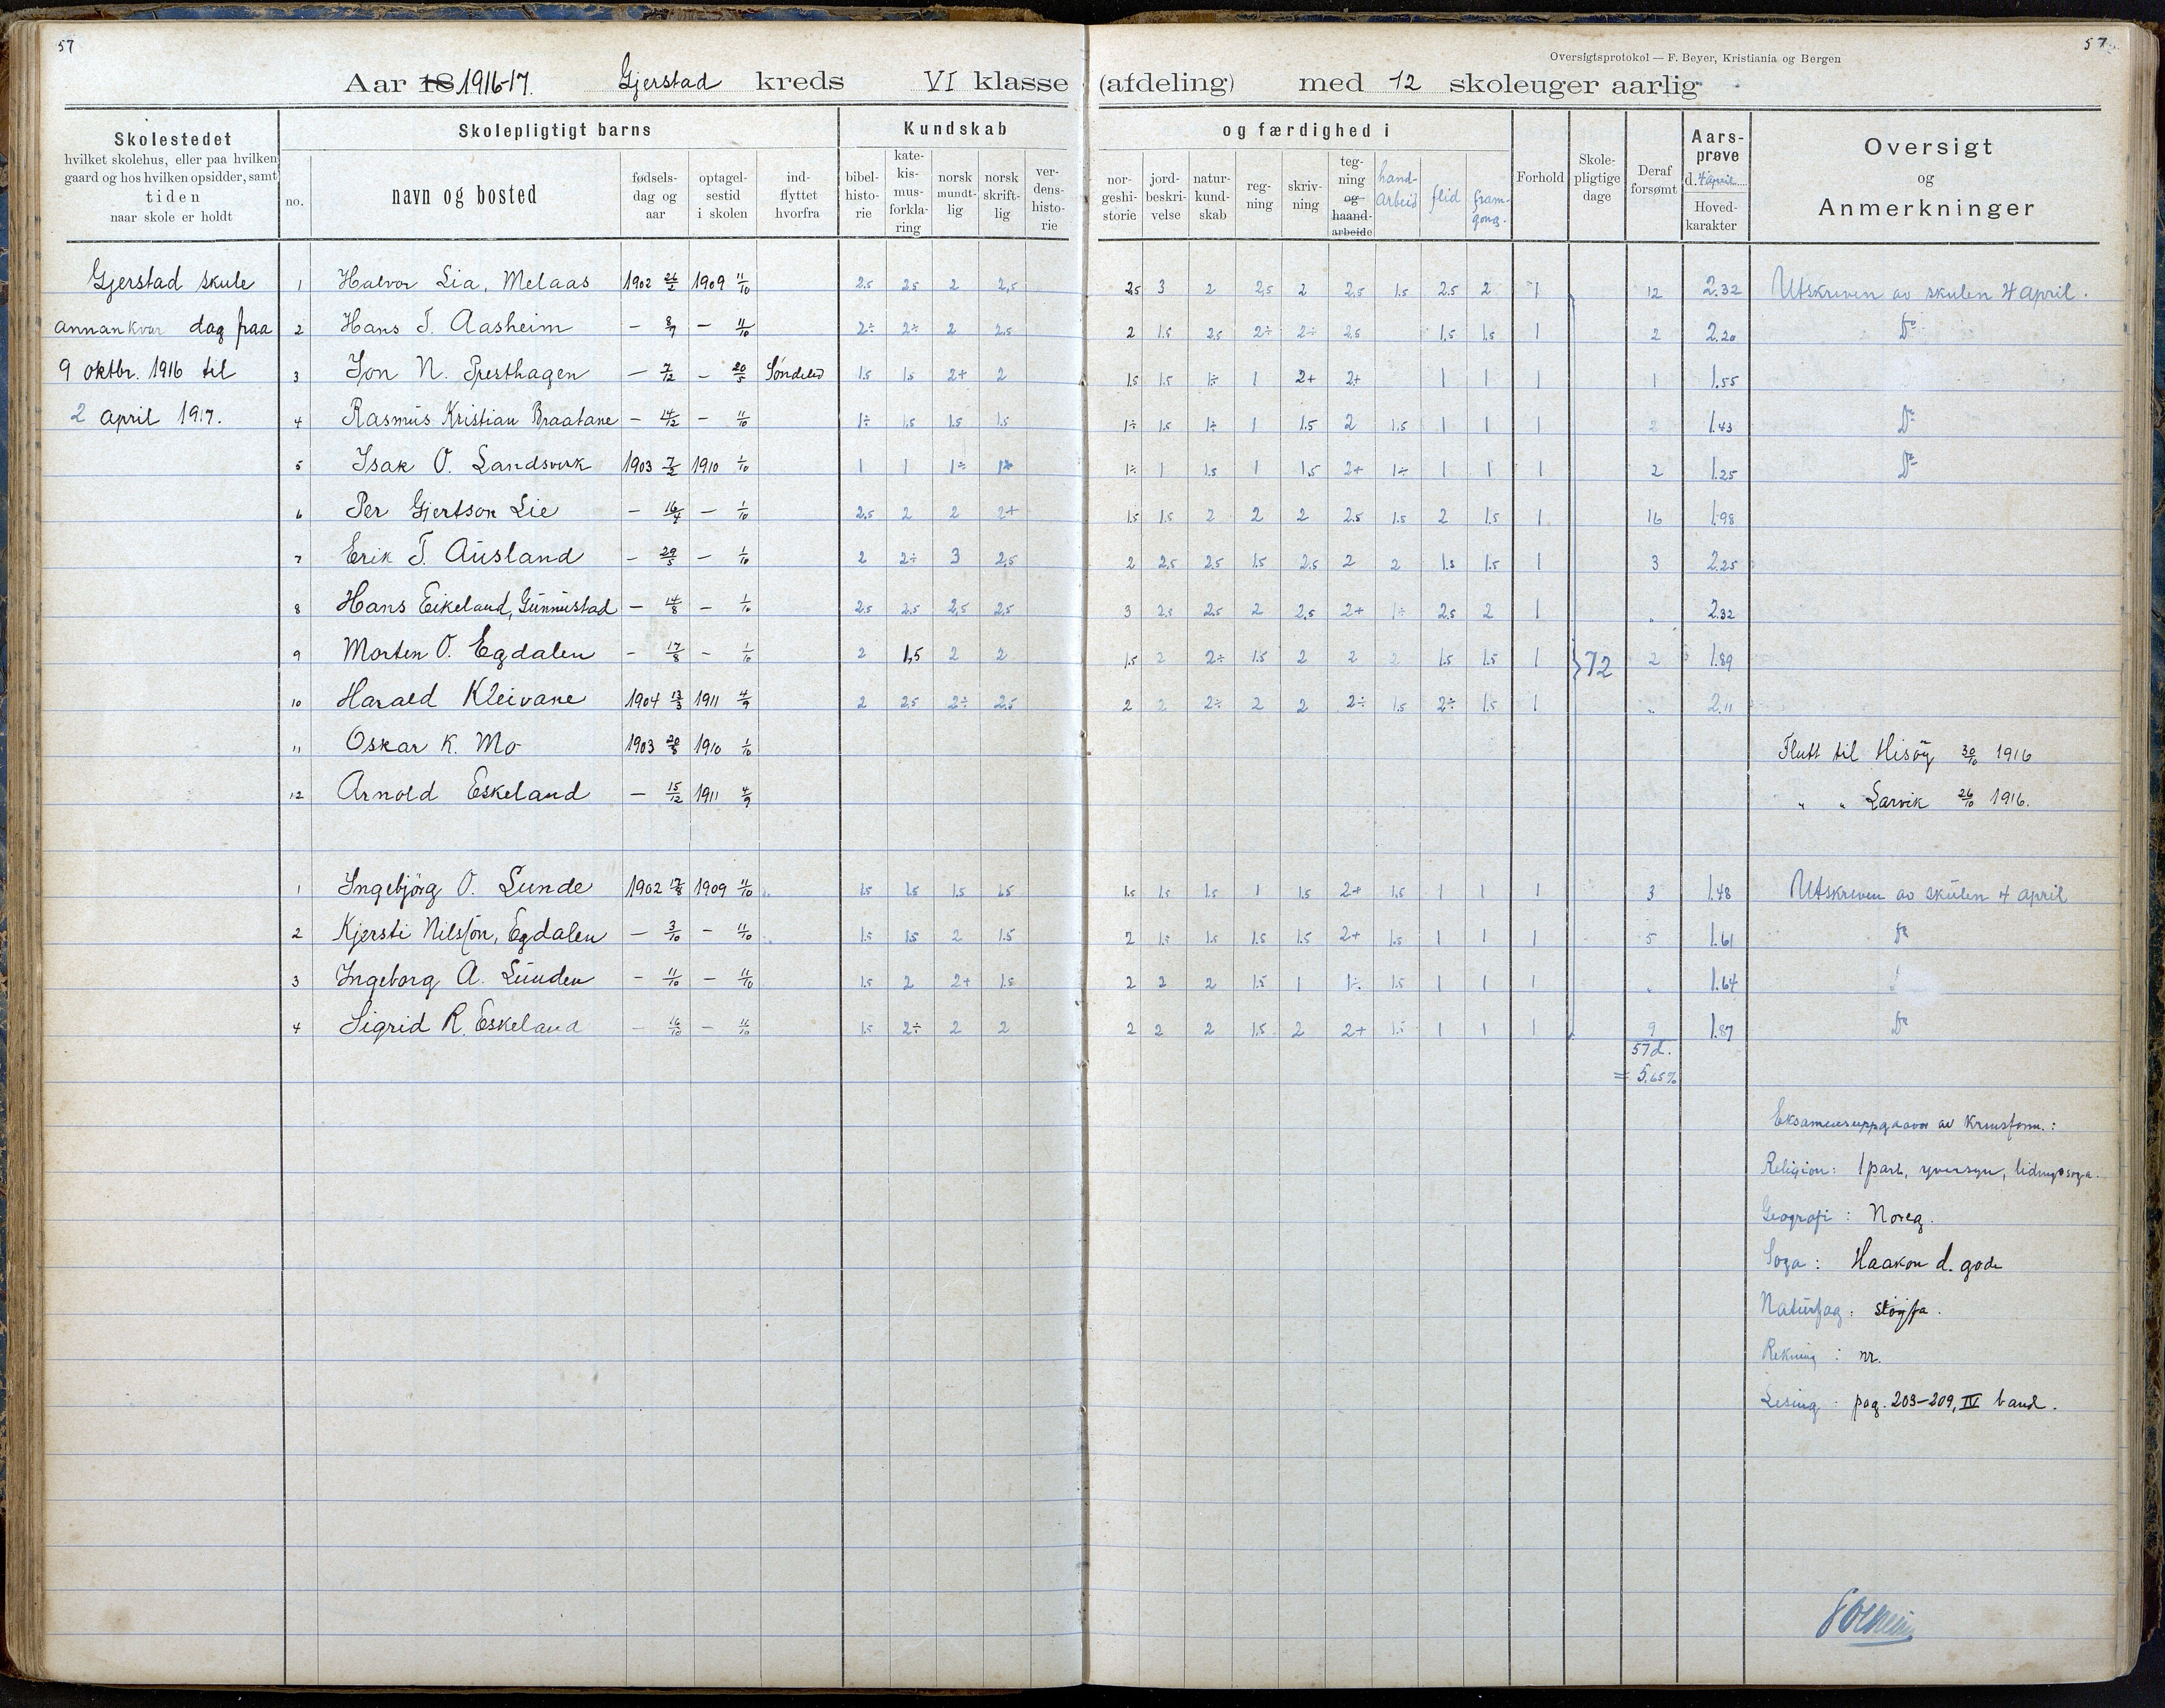 57
57
Oversigtsprotokol — F. Beyer, Kristiania og Bergen
Aar 18 1916-17. Gjerstad kreds VI klasse (afdeling) med 12 skoleuger aarlig
Skolestedet hvilket skolehus, eller paa hvilken gaard og hos hvilken opsidder, samt tiden naar skole er holdt
Skolepligtigt barns
no. navn og bosted fødsels-dag og aar optagel-sestid i skolen ind-flyttet hvorfra
Kundskab og færdighed i
bibel-histo-rie kate-kis-mus-forkla-ring norsk mundt-lig norsk skrift-lig ver-dens-histo-rie nor-geshi-storie jord-beskri-velse natur-kund-skab reg-ning skriv-ning teg-ning og haand-arbeide hand-arbeid flid fram-gong.
Forhold Skole-pligtige dage Deraf forsømt Aars-prøve d. 4 april Hoved-karakter
Oversigt og Anmerkninger
Gjerstad skule 1 Halvor Lia, Melaas 1902 26/2 1909 11/10 2,5 2,5 2 2,5 2,5 3 2 2,5 2 2,5 1.5 2.5 2 1 12 2.32 Utskriven av skulen 4 april.
annankvar dag fraa 2 Hans T. Aasheim — 8/7 — 11/10 2÷ 2÷ 2 2.5 2 1.5 2,5 2÷ 2÷ 2,5 1,5 1,5 1 2 2.20 Do
9 oktbr. 1916 til 3 Jon N. Presthagen — 7/12 — 20/5 Søndeled 1.5 1.5 2+ 2 1.5 1.5 1÷ 1 2+ 2+ 1 1 1 1 1.55
2 april 1917. 4 Rasmus Kristian Braatane — 14/12 — 11/10 1÷ 1.5 1.5 1.5 1÷ 1.5 1÷ 1 1.5 2 1.5 1 1 1 2 1.43 Do
5 Isak O. Landsverk 1903 7/2 1910 1/10 1 1 1÷ 1÷ 1÷ 1 1.5 1 1.5 2+ 1÷ 1 1 1 2 1.25 Do
6 Per Gjertson Lie — 16/4 — 1/10 2,5 2 2 2+ 1.5 1.5 2 2 2 2.5 1.5 2 1.5 1 16 1.98
7 Erik T. Ausland — 29/5 — 1/10 2 2÷ 3 2,5 2 2.5 2.5 1.5 2.5 2 2 1.5 1.5 1 3 2.25
8 Hans Eikeland, Gunnustad — 14/8 — 1/10 2.5 2.5 2,5 2.5 3 2.5 2.5 2 2,5 2+ 1÷ 2.5 2 1 " 2.32
9 Morten O. Egdalen — 17/8 — 1/10 2 1,5 2 2 1.5 2 2÷ 1.5 2 2 2 1.5 1.5 1 72 2 1.89
10 Harald Kleivane 1904 13/3 1911 4/9 2 2,5 2÷ 2,5 2 2 2÷ 2 2 2÷ 1.5 2÷ 1.5 1 " 2.11
11 Oskar K. Mo 1903 20/8 1910 1/10 Flutt til Hisøy 30/10 1916
12 Arnold Eskeland — 15/12 1911 4/9 " " Larvik 26/10 1916.
1 Ingebjörg O. Lunde 1902 17/8 1909 11/10 1.5 1.5 1.5 1.5 1.5 1.5 1.5 1 1.5 2+ 1.5 1 1 1 3 1.48 Utskriven av skulen 4 april
2 Kjersti Nilsson, Egdalen — 3/10 — 11/10 1.5 1.5 2 1.5 2 1.5 1.5 1.5 1.5 2+ 1.5 1 1 1 5 1.61 Do
3 Ingeborg A. Lunden — 11/10 — 11/10 1.5 2 2+ 1.5 2 2 2 1.5 1 1÷ 1.5 1 1 1 " 1.64
4 Sigrid R. Eskeland — 16/10 — 11/10 1.5 2÷ 2 2 2 2 2 1.5 2 2+ 1.5 1 1 1 9 1.87 Do
57 d.
= 5.65%
Eksamensuppgaavor av
Religion: 1 part, yversyn,
Geografi: Noreg.
Soga: Haakon d. gode
Naturfag:
Rekning: nr.
Lesing: pag. 203-209, IV band.